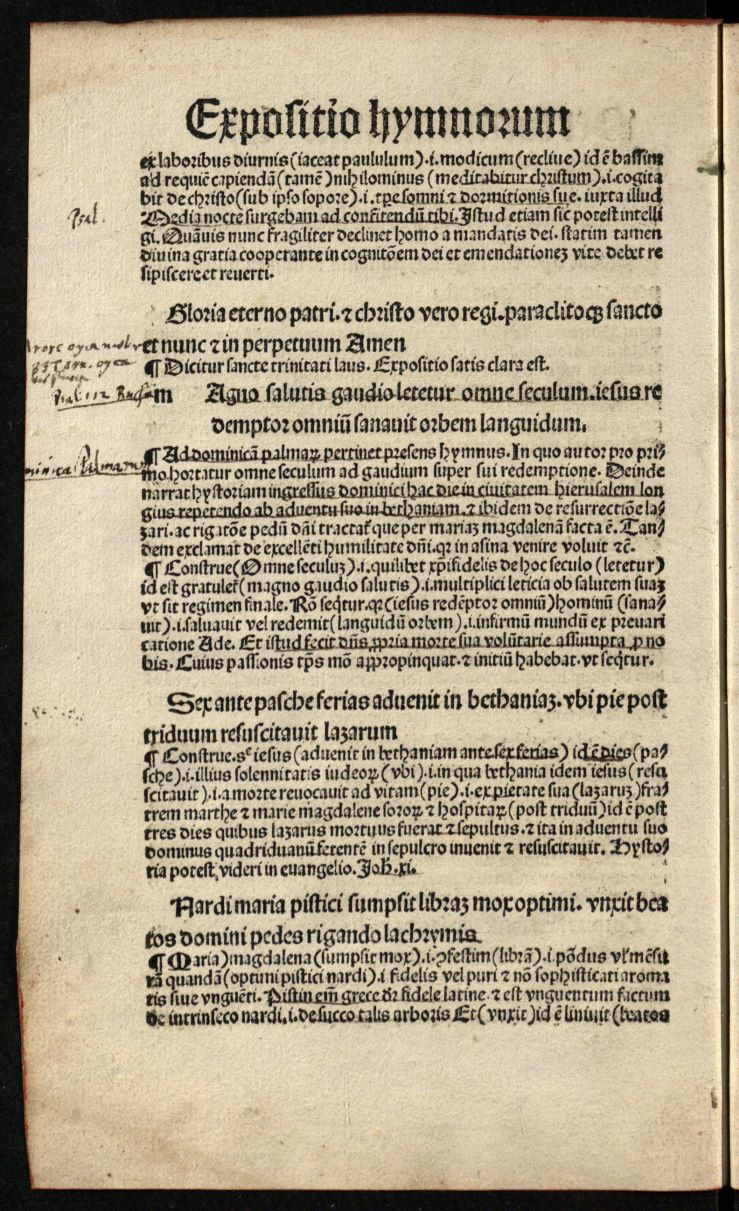 Expositio hymnorum
ex laboribus diurnis (iaceat paululum).i.modicum (recliue) id ē bassim
ad requiē capiendā (tamē) nihilominus (meditabitur christum).i.cogita
bit de christo (sub ipso sopore).i.tꝑe somni ⁊ dormitionis sue. iuxta illud
Psal.
Media nocte surgebam ad confitendū tibi. Istud etiam sic potest intelli
gi. Quāuis nunc fragiliter declinet homo a mandatis dei. statim tamen
diuina gratia cooperante in cognitōem dei et emendationeꝫ vite debet re
sipiscere et reuerti.
Gloria eterno patri.⁊ christo vero regi.paraclitoqꝫ sancto
et nunc ⁊ in perpetuum Amen
¶ Dicitur sancte trinitati laus. Expositio satis clara est.
m Agno salutis gaudio letetur omne seculum.iesus re
demptor omniū sanauit orbem languidum.
¶ Ad dominicā palmaꝝ pertinet presens hymnus. In quo autor pro pri⸗
mo hortatur omne seculum ad gaudium super sui redemptione. Deinde
narrat hystoriam ingressus dominici hac die in ciuitatem hierusalem lon
gius repetendo ab aduentu suo in bethaniam.⁊ ibidem de resurrectiōe la⸗
zari.ac rigatōe pedū dn̄i tractat̄ que per mariaꝫ magdalenā facta ē. Tan⸗
dem exclamat de excellēti humilitate dn̄i.qꝛ in asina venire voluit ⁊c̄.
¶ Construe (Omne seculuꝫ).i.quilibet xp̄ifidelis de hoc seculo (letetur)
id est gratulet̄ (magno gaudio salutis).i.multiplici leticia ob salutem suaꝫ
vt sit regimen finale. Rō seq̄tur.qꝛ (iesus redēptor omniū) hominū (sana⸗
uit).i.saluauit vel redemit (languidū orbem).i.infirmū mundū ex preuari
catione Ade. Et istud fecit dn̄s ꝓpria morte sua volūtarie assumpta ꝓ no
bis. Cuius passionis tp̄s mō appropinquat.⁊ initiū habebat.vt seq̄tur.
Sex ante pasche ferias aduenit in bethaniaꝫ.vbi pie post
triduum resuscitauit lazarum
¶ Construe.sᵉ iesus (aduenit in bethaniam ante sex ferias) id ē dies (pa⸗
sche).i.illius solennitatis iudeoꝝ (vbi).i.in qua bethania idem iesus (resu
scitauit).i.a morte reuocauit ad vitam (pie).i.ex pietate sua (lazaruꝫ) fra⸗
trem marthe ⁊ marie magdalene soroꝝ ⁊ hospitaꝝ (post triduū) id ē post
tres dies quibus lazarus mortuus fuerat ⁊ sepultus.⁊ ita in aduentu suo
dominus quadriduanū fetentē in sepulcro inuenit ⁊ resuscitauit. Hysto⸗
ria potest videri in euangelio. Joh̄.xi.
Nardi maria pistici sumpsit libraꝫ mox optimi. vnxit bea
tos domini pedes rigando lachrymis
¶ Maria) magdalena (sumpsit mox).i.ꝯfestim (librā).i.pōdus vl̄ mēsu
rā quandā (optimi pistici nardi).i fidelis vel puri ⁊ nō sophisticati aroma
tis siue vnguēti. Pistin em̄ grece dr̄ fidele latine.⁊ est vnguentum factum
de intrinseco nardi.i.de succo talis arboris Et (vnxit) id ē liniuit (beatos